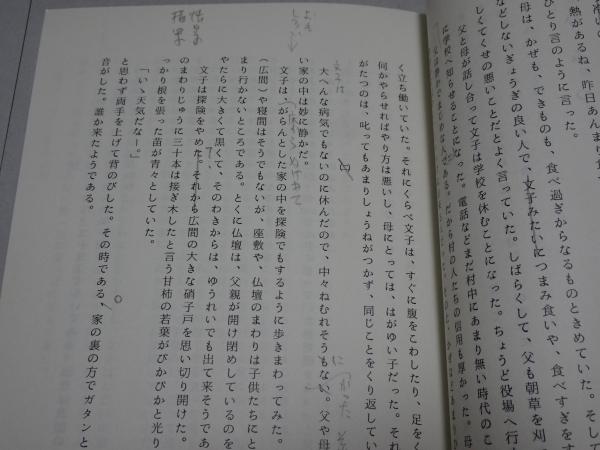 熱があるね、昨日あんま
ひとり言のように言った。
母は、かぜも、できものも、食べ過ぎからなるものときめていた。そし
などしないぎょうぎの良い人で、文子みたいにつまみ食いや、食べすぎをす
しくてくせの悪いことだとよく言っていた。しばらくして、父も朝草を刈
父と母が話し合って文子は学校を休むことになった。ちょうど役場へ行
に学校へ知らせることになった。電話などまだ村中にあまり無い時代のこ
だから村の人たちの信用も厚かった。母
く立ち働いていた。それにくらべ文子は、すぐに腹をこわしたり、足をく
何かやらせればやり方は悪いし、母にとっては、はがゆい子だった。それ
がたつのは、叱ってもあまりしょうねがつかず、同じことをくり返してい
大へんな病気でもないのに休んだので、中々ねむれそうもない。父や母
い家の中は妙に静かだ。
文子は、がらんとした家の中を探険でもするように歩きまわってみた。
（広間）や寝間はそうでもないが、座敷や、仏壇のまわりは子供たちにと
まり行かないところである。とくに仏壇は、父親が開け閉めしているのを
やたらに大きくて黒くて、そのわきからは、ゆうれいでも出て来そうであ
文子は探険をやめた。それから広間の大きな硝子戸を思い切り開けた。
のまわりじゅうに三十本は接ぎ木したと言う甘柿の若葉がぴかぴかと光り
っかり根を張った苗が青々としていた。
「いゝ天気だなー。」
と思わず両手を上げて背のびした。その時である、家の裏の方でガタンと
音がした。誰か来たようである。
文子は